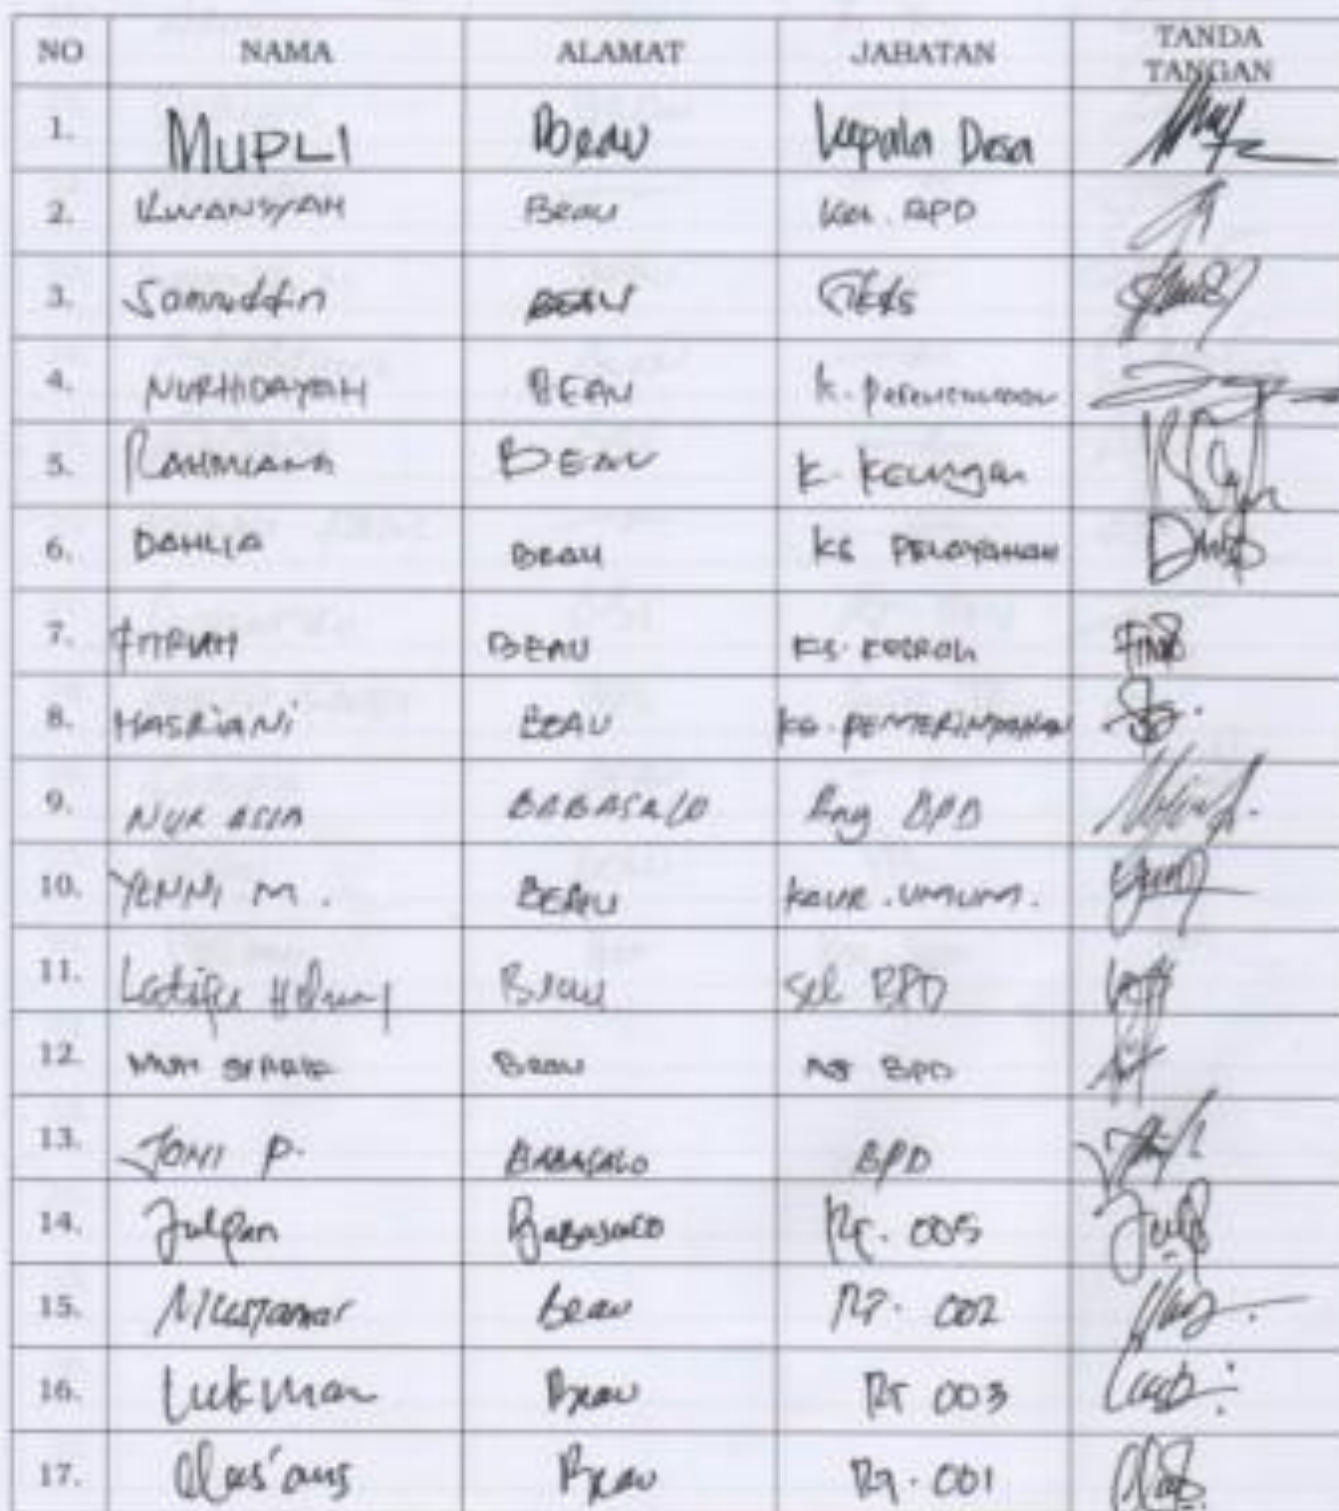 NO NAMA ALAMAT JABATAN TANDA TANGAN
1. MUPLI Beau Kepala Desa
2. KWANSYAH Beau Ket. BPD
3. Samruddin BEAU
4. NURHIDAYAH BEAU K.
5. RAHMIANA BEAU K. Keungan
6. DAHLIA BEAU KS PELAYANAN
7. FITRIAH BEAU KS.
8. HASRIANI BEAU KS. PEMERINTAHAN
9. NUR ASIA BABASALO Ang BPD
10. YENNI M. BEAU KAUR. UMUM.
11. Beau BPD
12. BEAU BPD
13. JONI P. BABASALO BPD
14. Julpan Babasalo RT. 005
15. Beau RT. 002
16. Lukman Beau RT 003
17. Beau RT. 001